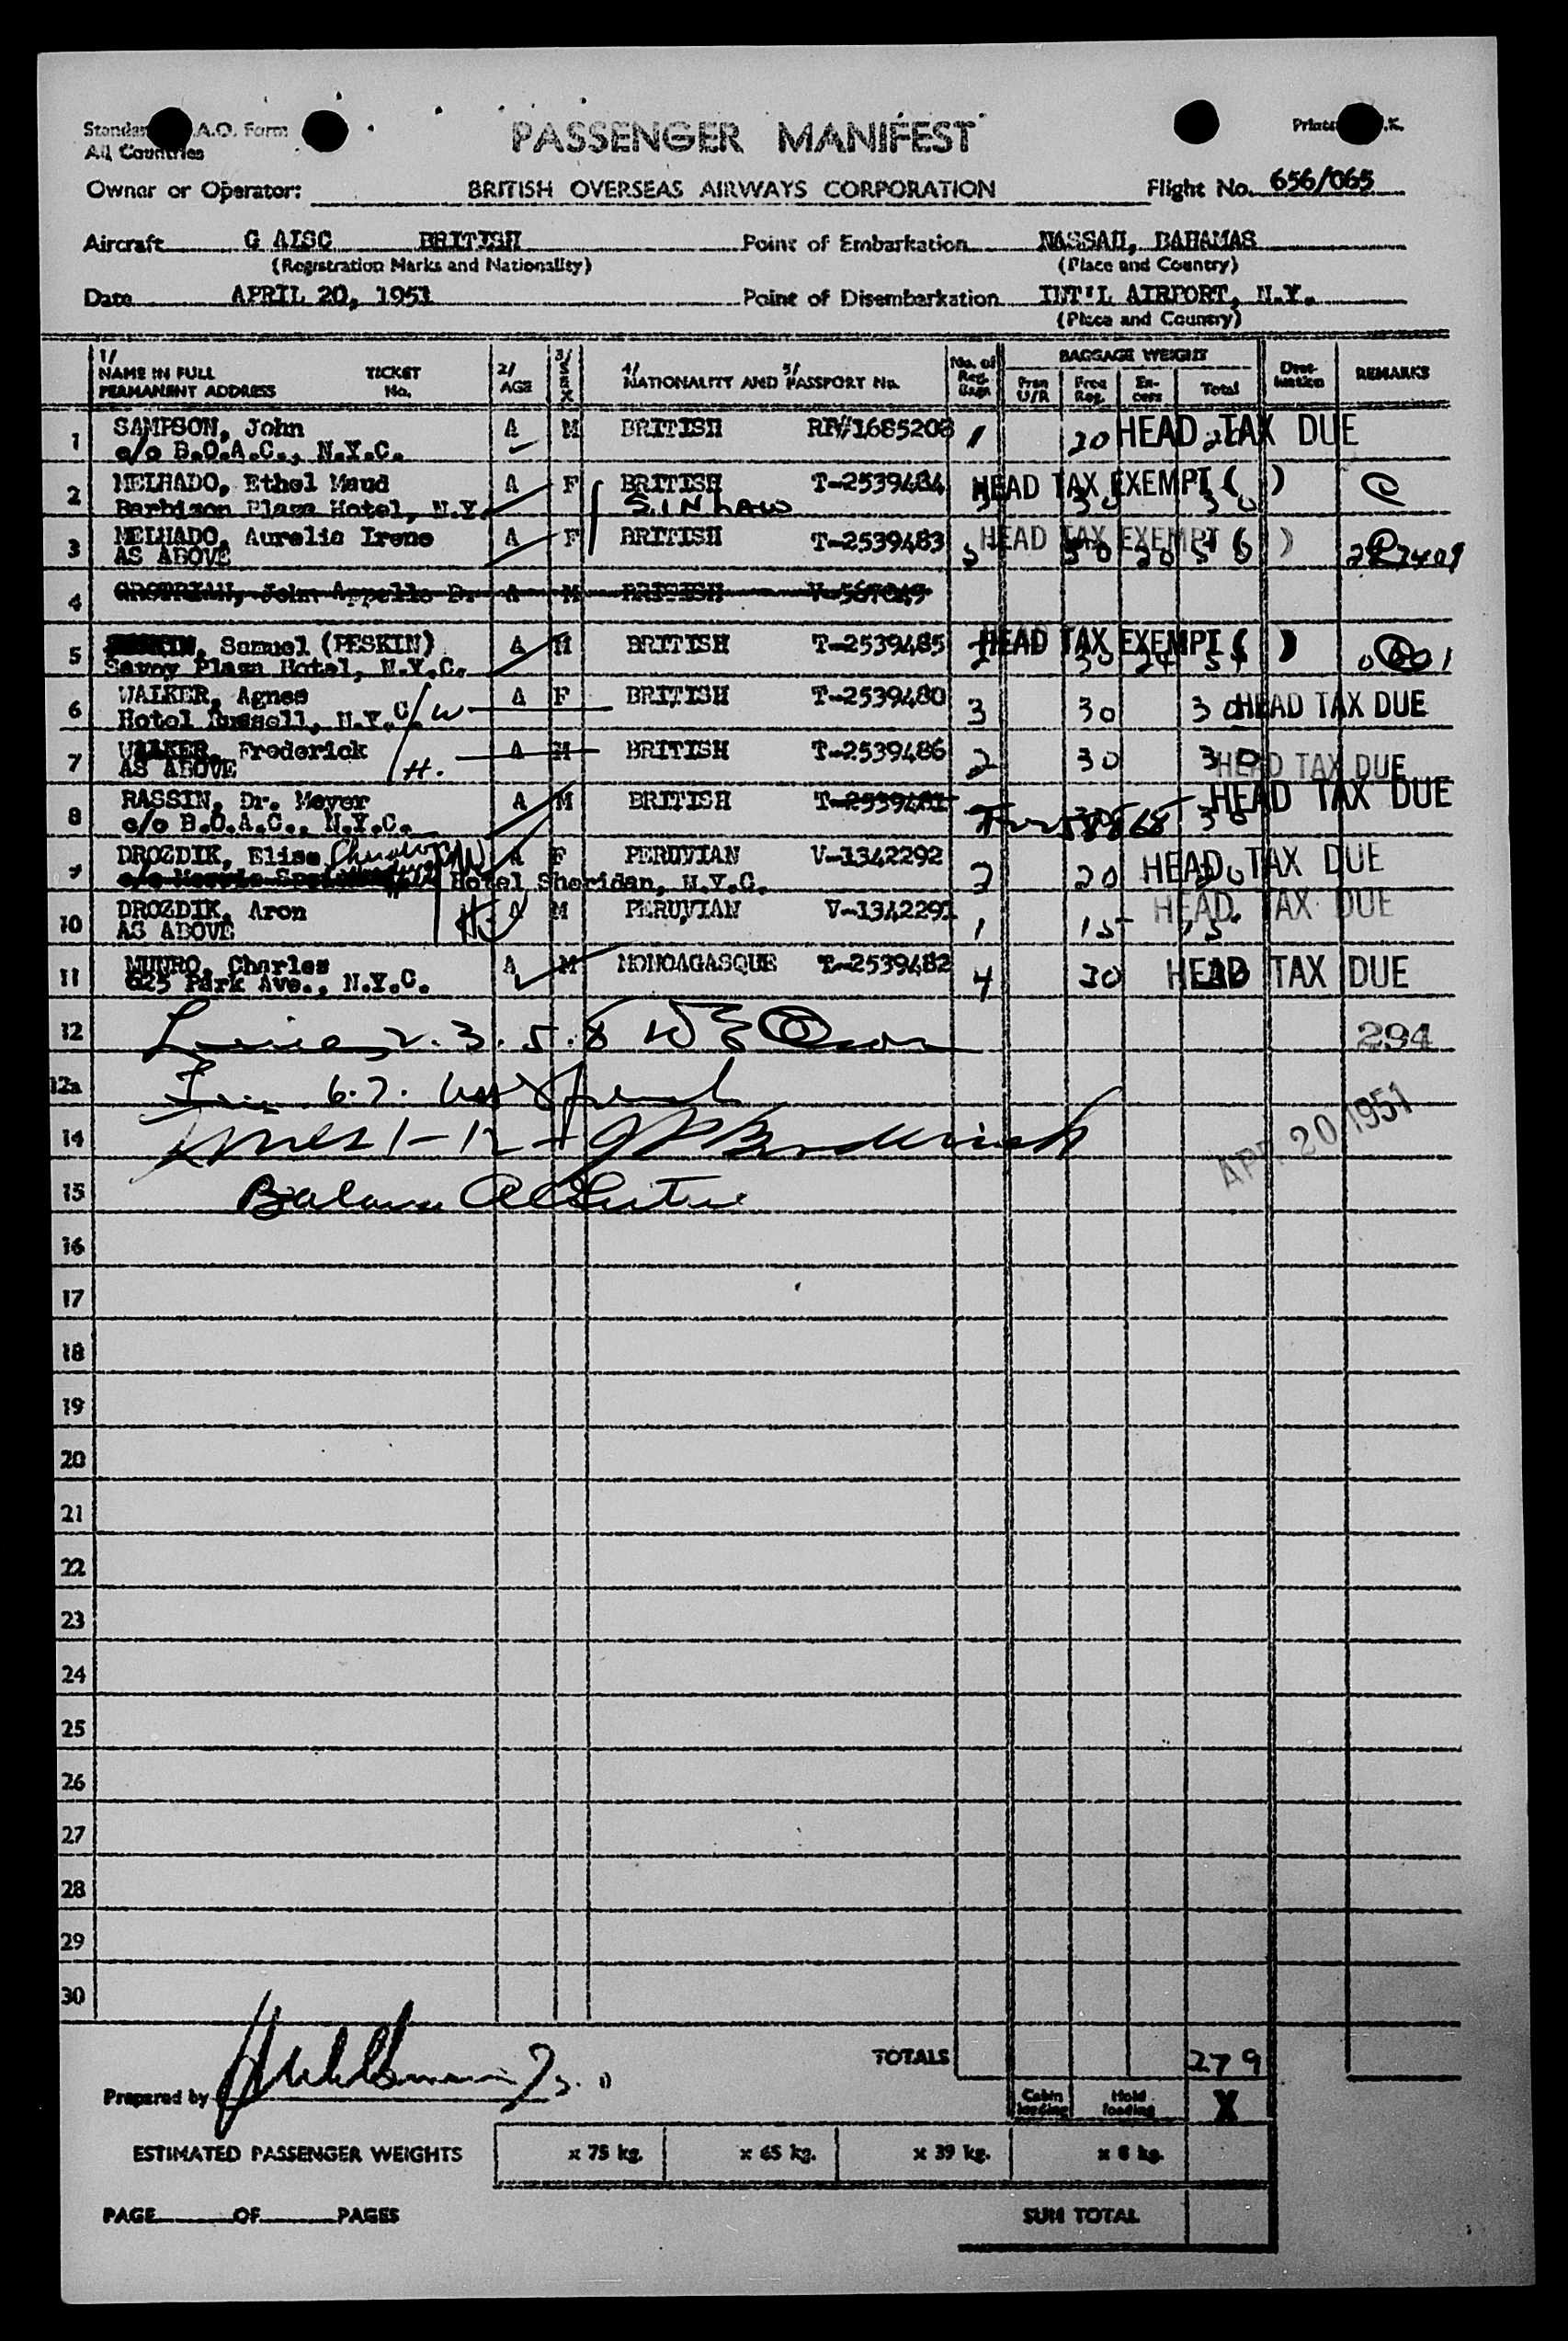 Standar A.O. Form
All Countries
PASSENGER MANIFEST
Owner or Operator: BRITISH OVERSEAS AIRWAYS CORPORATION Flight No. 656/065
Aircraft G AISC BRITISH Point of Embarkation NASSAU, BAHAMAS
(Registration Marks and Nationality) (Place and Country)
Date APRIL 20, 1951 Point of Disembarkation INT'L AIRPORT, N.Y.
(Place and Country)
1/ NAME IN FULL PERMANENT ADDRESS TICKET No. 2/ AGE 3/ SEX 4/ NATIONALITY AND 5/ PASSPORT No. No. of Reg. Bags BAGGAGE WEIGHT Free Reg. Ex-cess Total Dest-ination REMARKS
1 SAMPSON, John A M BRITISH RP#1685208 1 20 HEAD TAX DUE
c/o B.O.A.C., N.Y.C.
2 MELHADO, Ethel Maud A F BRITISH T-2539484 HEAD TAX EXEMPT ( )
Barbizon Plaza Hotel, N.Y. S. IN LAW
3 MELHADO, Aurelie Irene A F BRITISH T-2539483 HEAD TAX EXEMPT ( )
AS ABOVE
4 John Appello D. A M BRITISH V-567049
5 Samuel (PESKIN) A M BRITISH T-2539485 HEAD TAX EXEMPT ( )
Savoy Plaza Hotel, N.Y.C.
6 WALKER, Agnes A F BRITISH T-2539480 3 30 30 HEAD TAX DUE
Hotel Russell, N.Y.C. W
7 WALKER, Frederick A M BRITISH T-2539486 2 30 30 HEAD TAX DUE
AS ABOVE H.
8 RASSIN, Dr. Meyer A M BRITISH T-2539481 HEAD TAX DUE
c/o B.O.A.C., N.Y.C.
9 DROZDIK, Elise A F PERUVIAN V-1342292 2 20 HEAD TAX DUE
Hotel Sheridan, N.Y.C.
10 DROZDIK, Aron A M PERUVIAN V-1342291 1 15 15 HEAD TAX DUE
AS ABOVE
11 MUNRO, Charles A M MONOAGASQUE T-2539482 4 30 HEAD TAX DUE
625 Park Ave., N.Y.C.
12 2. 3. 5. 8 294
12a 6. 7.
14 APR 20 1951
15
16
17
18
19
20
21
22
23
24
25
26
27
28
29
30
TOTALS 279
Prepared by Cabin loading Hold loading X
ESTIMATED PASSENGER WEIGHTS x 75 kg. x 65 kg. x 39 kg. x 8 kg.
PAGE OF PAGES SUM TOTAL